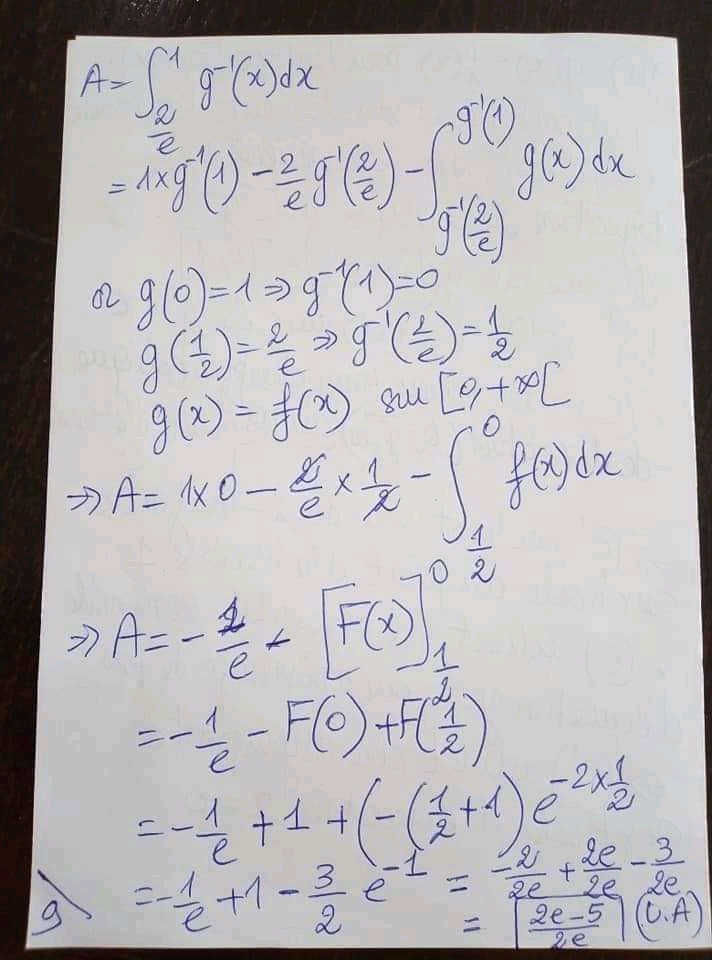 A = ∫_{2/e}^{1} g⁻¹(x)dx
= 1×g⁻¹(1) - 2/e g⁻¹(2/e) - ∫_{g⁻¹(2/e)}^{g⁻¹(1)} g(x) dx
or g(0) = 1 ⇒ g⁻¹(1) = 0
g(1/2) = 2/e ⇒ g⁻¹(2/e) = 1/2
g(x) = f(x) sur [0, +∞[
⇒ A = 1×0 - 2/e × 1/2 - ∫_{1/2}^{0} f(x) dx
⇒ A = - 1/e - [F(x)]_{1/2}^{0}
= - 1/e - F(0) + F(1/2)
= - 1/e + 1 + (-(1/2 + 1) e^{-2×1/2}
= - 1/e + 1 - 3/2 e^{-1} = -2/2e + 2e/2e - 3/2e
9 = (2e-5)/2e (U.A)